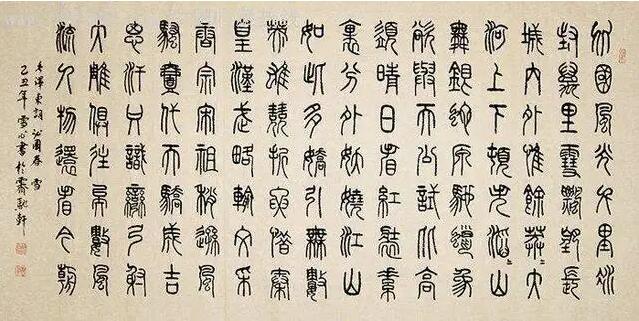 北國風光千里冰
封萬里雪飄望長
城内外惟餘莽〻大
河上下頓失滔〻山
舞銀蛇原馳蠟象
欲與天公試比高
須晴日看紅裝素
裹分外妖嬈江山
如此多嬌引無數
英雄競折腰惜秦
皇漢武略輸文采
唐宗宋祖稍遜風
騷壹代天驕成吉
思汗只識彎弓射
大雕俱往矣數風
流人物還看今朝
毛澤東詞 沁園春 雪
己丑年 雪心書於軒